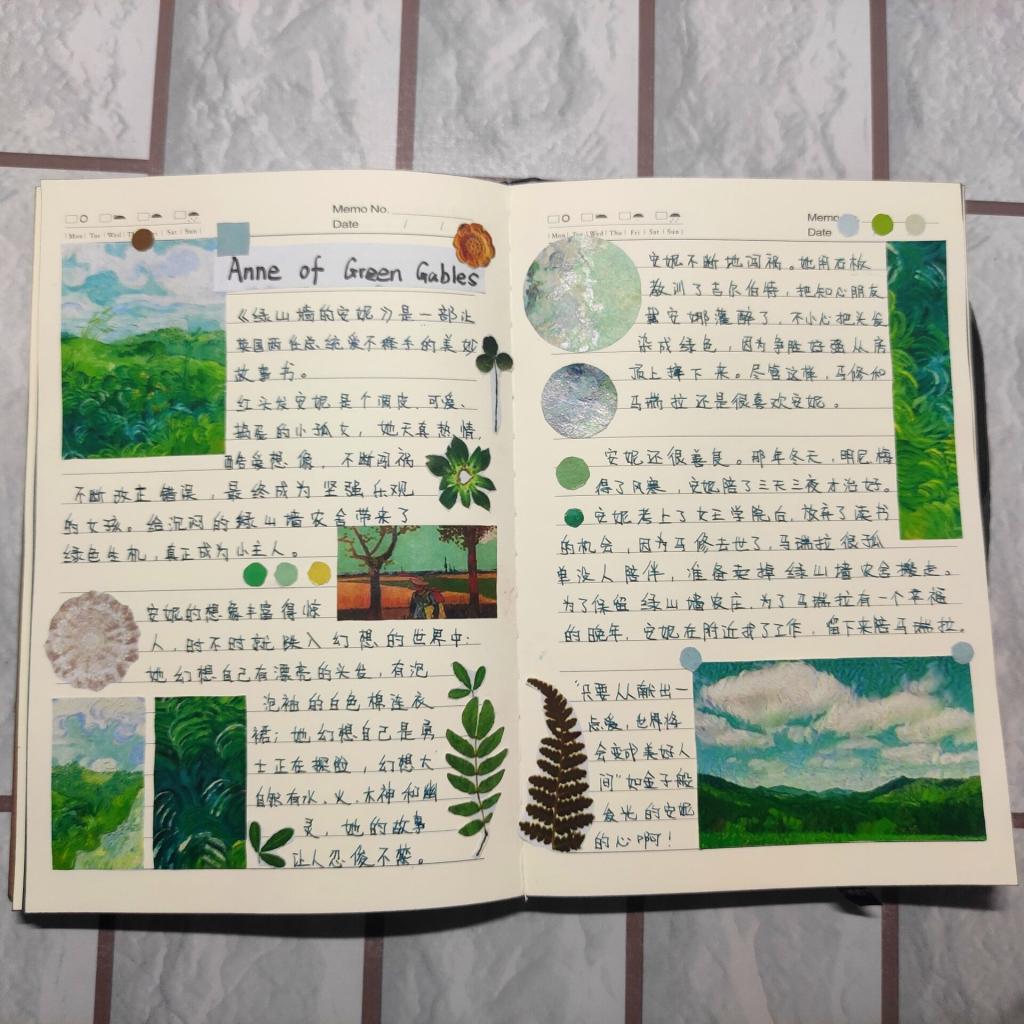 Memo No.
Date / /
Mon Tue Wed Thu Fri Sat Sun
Anne of Green Gables
《绿山墙的安妮》是一部让
英国两任总统爱不释手的美妙
故事书。
红头发安妮是个调皮、可爱、
捣蛋的小孤女，她天真热情，
酷爱想像，不断闯祸
不断改正错误，最终成为坚强乐观
的女孩。给沉闷的绿山墙农舍带来了
绿色生机，真正成为小主人。
安妮的想象丰富得惊
人，时不时就跌入幻想的世界中：
她幻想自己有漂亮的头发，有泡
泡袖的白色棉连衣
裙；她幻想自己是勇
士正在探险，幻想大
自然有水、火、木神和幽
灵，她的故事
让人忍俊不禁。
Memo
Date
Mon Tue Wed Thu Fri Sat Sun
安妮不断地闯祸。她用石板
教训了吉尔伯特，把知心朋友
戴安娜灌醉了，不小心把头发
染成绿色，因为争胜好强从房
顶上摔下来。尽管这样，马修和
马瑞拉还是很喜欢安妮。
安妮还很善良。那年冬天，明尼梅
得了风寒，安妮陪了三天三夜才治好。
安妮考上了女王学院后，放弃了读书
的机会，因为马修去世了，马瑞拉很孤
单没人陪伴，准备卖掉绿山墙农舍搬走。
为了保留绿山墙农庄，为了马瑞拉有一个幸福
的晚年，安妮在附近找了工作，留下来陪马瑞拉。
"只要人人献出一
点爱，世界将
会变成美好人
间"如金子般
发光的安妮
的心啊！